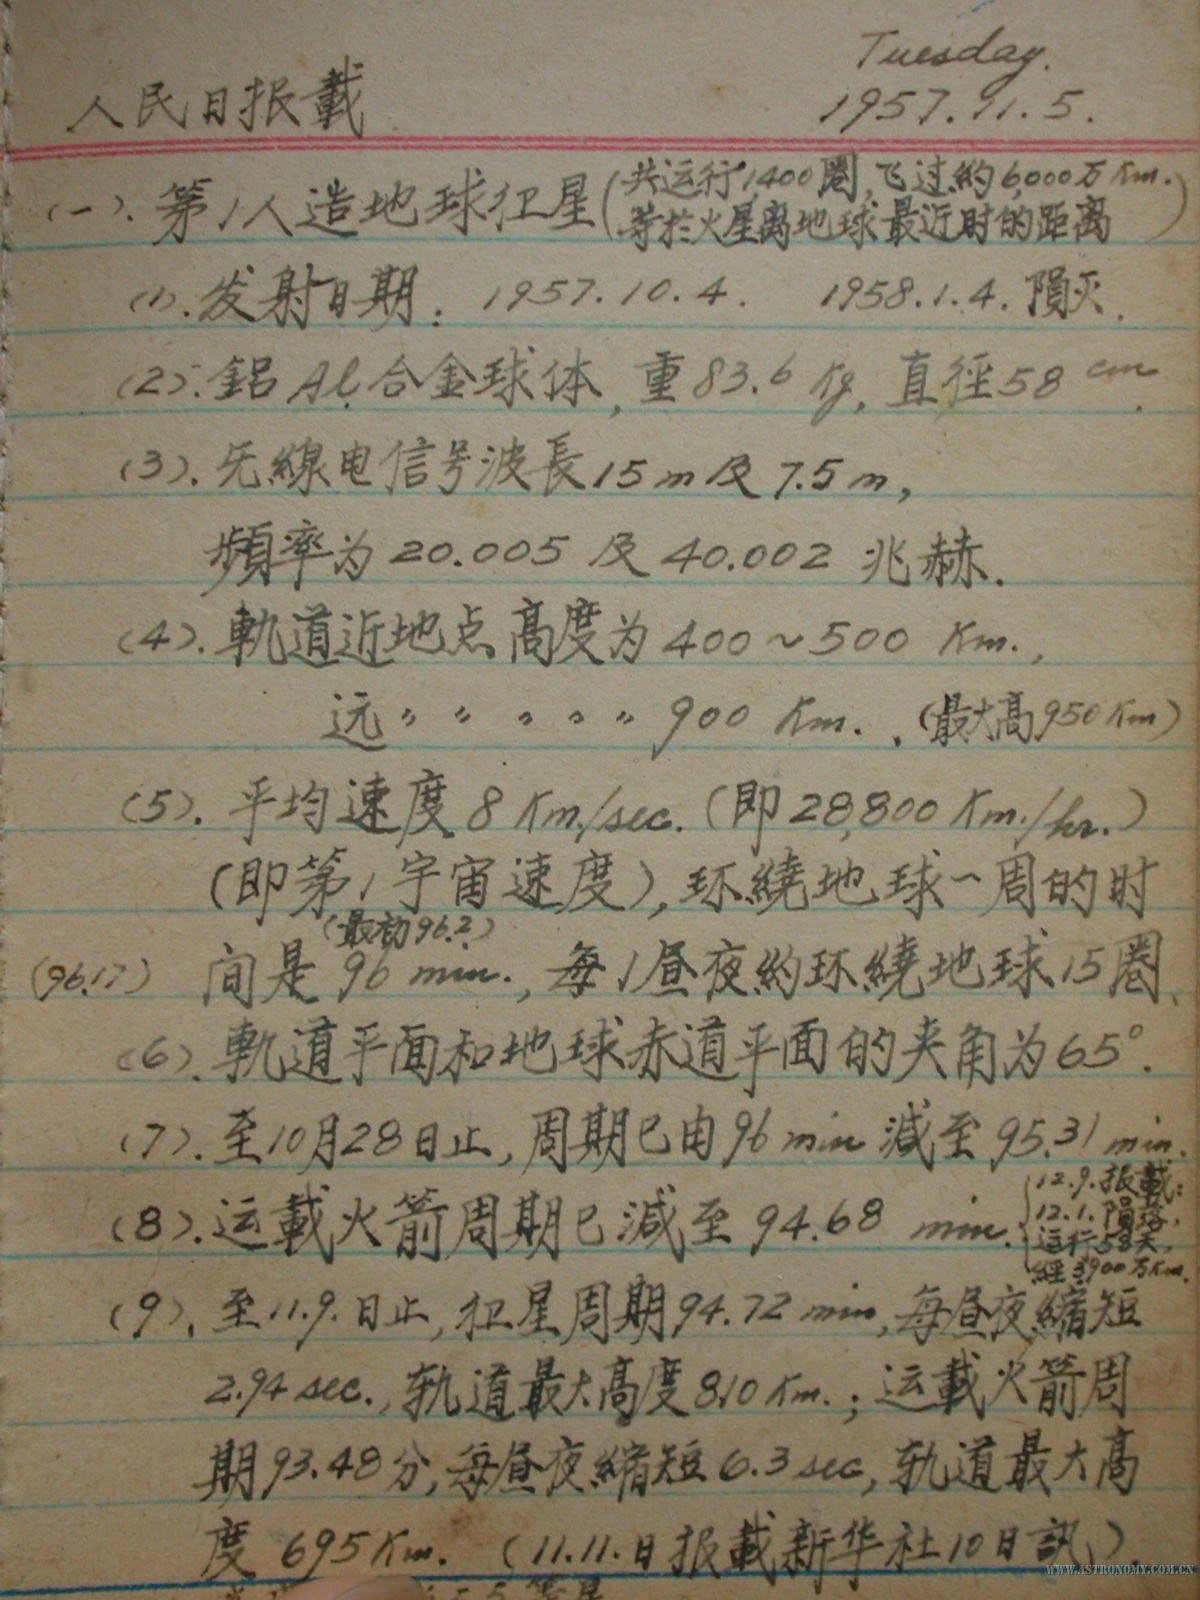 Tuesday.
人民日报載 1957.11.5.
(一).第1人造地球卫星(共运行1400圈,飞过約6,000万Km.
等於火星离地球最近时的距离)
(1).发射日期: 1957.10.4. 1958.1.4.隕灭.
(2).鋁Al合金球体,重83.6 Kg,直徑58 cm.
(3).无線电信号波長15m及7.5m,
頻率为20.005及40.002兆赫.
(4).軌道近地点高度为400~500 Km.,
远〃〃〃〃〃900 Km..(最大高950Km)
(5).平均速度8 Km./sec.(即28,800 Km./hr.)
(即第1宇宙速度),环繞地球一周的时
(最初96.2)
(96.17) 间是96 min.,每1昼夜約环繞地球15圈.
(6).軌道平面和地球赤道平面的夹角为65°.
(7).至10月28日止,周期已由96 min減至95.31 min.
(8).运載火箭周期已減至94.68 min.
{12.9.报載:
12.1.隕落,
运行58天,
經3,900万Km.
(9).至11.9.日止,卫星周期94.72 min,每昼夜縮短
2.94 sec.,轨道最大高度810 Km.;运載火箭周
期93.48分,每昼夜縮短6.3 sec,轨道最大高
度 695 Km. (11.11.日报載新华社10日訊).
WWW.ASTRONOMY.COM.CN